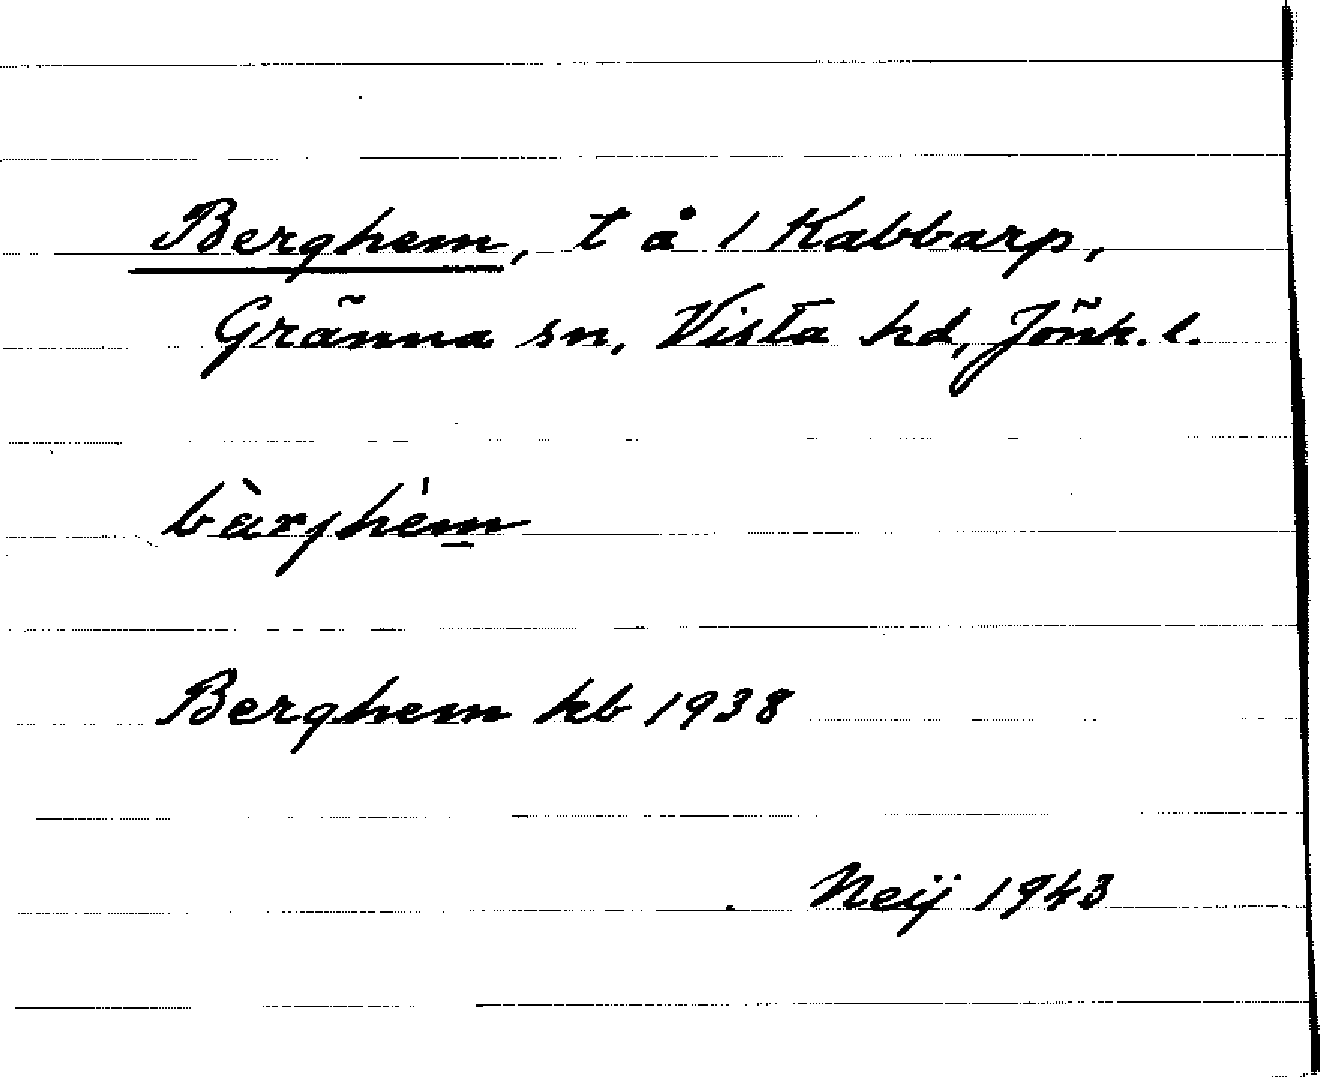 Berghem, t å 1 Kabbarp,
Gränna sn, Vista hd, Jönk. l.
bàrjhém
Berghem kb 1938
Neij 1943